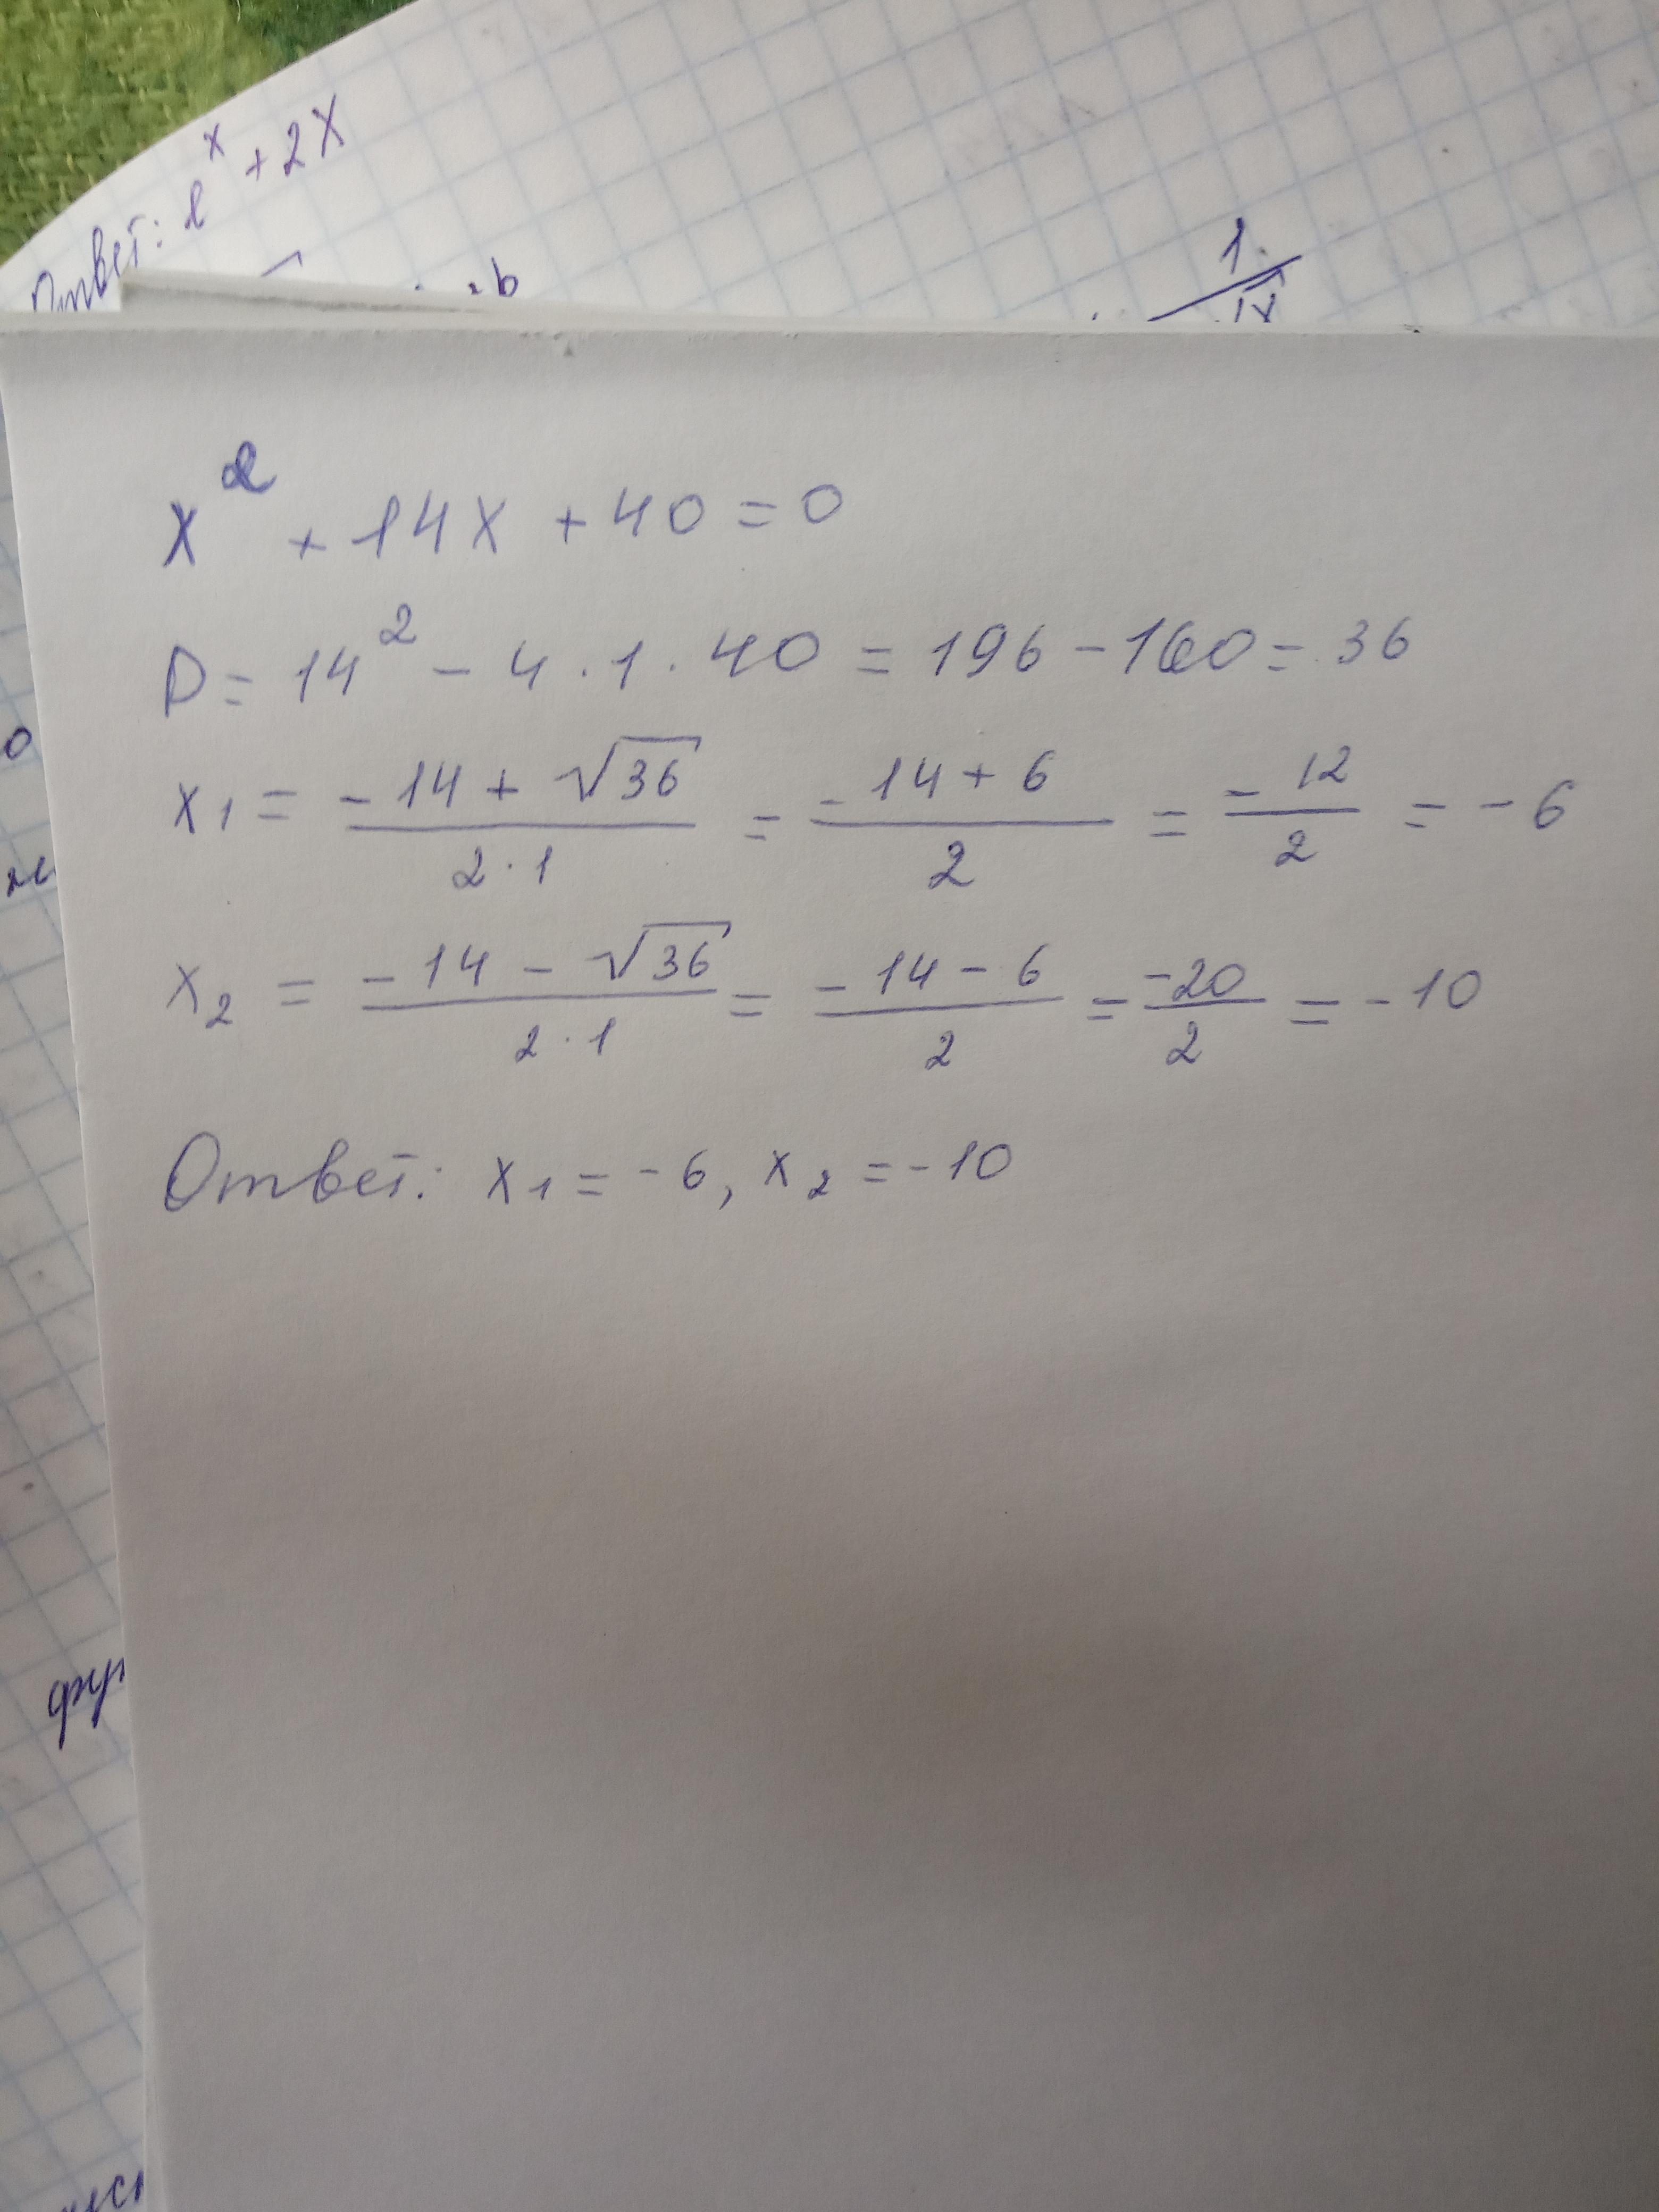 Ответ: e^x + 2x
b
1
x² + 14x + 40 = 0
D = 14² - 4 · 1 · 40 = 196 - 160 = 36
x₁ = (-14 + √36)/(2 · 1) = (-14 + 6)/2 = (-12)/2 = -6
x₂ = (-14 - √36)/(2 · 1) = (-14 - 6)/2 = (-20)/2 = -10
Ответ: x₁ = -6, x₂ = -10
фун